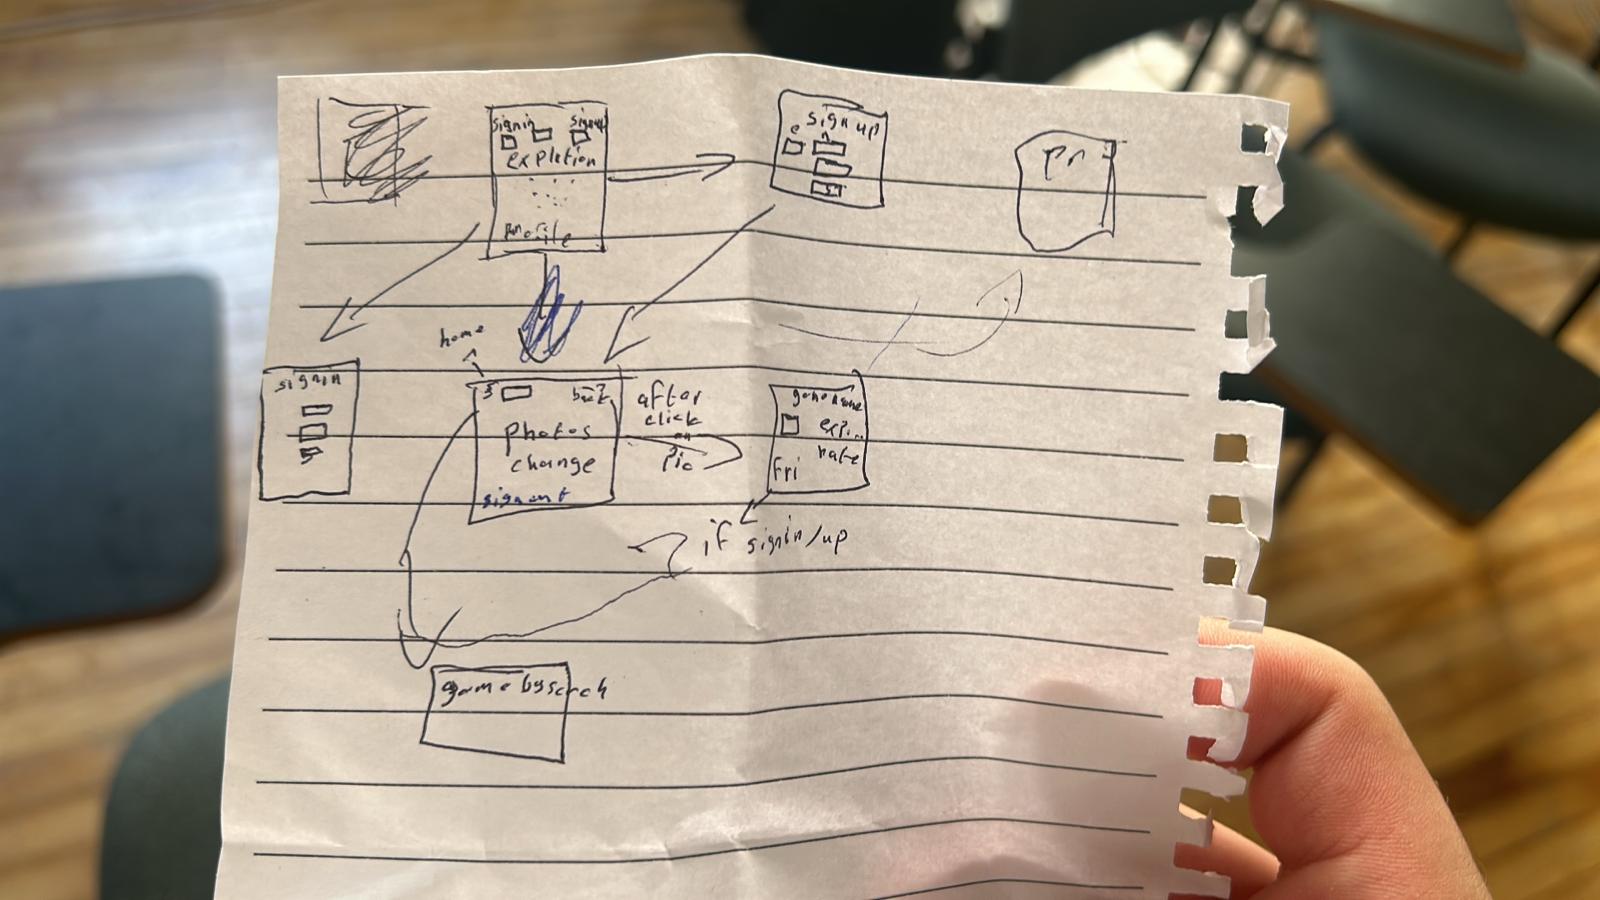 signin signup
expletion
profile
sign up
e
pr
home
signin
s
s back
photos
change
signout
after
click
on
pic
game name
expl...
rate
fri
if signin/up
game by serch